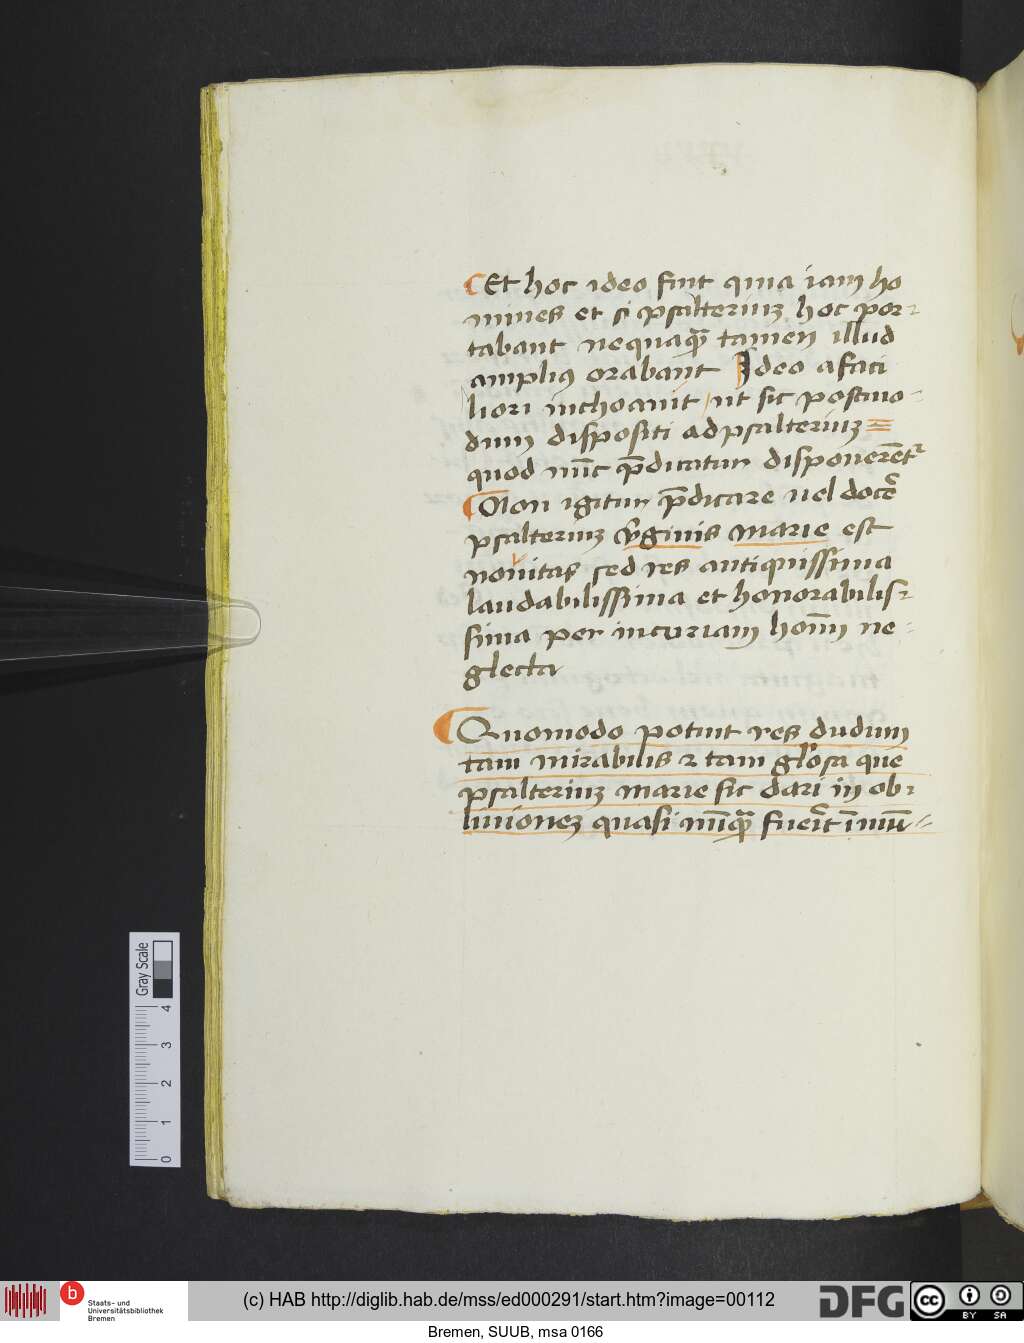 Et hoc ideo fuit quia iam ho
mines et si psalteriuʒ hoc por-
tabant nequaqͣ̄ tamen illud
amplius orabant Ideo a faci
liori inchoauit ut sic postmo-
dum dispositi ad psalteriuʒ =
quod nūc p̄dicatur disponerēt
Non igitur p̄dicare uel docē
psalteriuʒ v̄ginis marie est
nouitas sed res antiquissima
laudabilissima et honorabilis-
sima per incuriam homī ne-
glecta
Quomodo potuit res dudum
tam mirabilis ⁊ tam glōsa que
psalteriuʒ marie sic dari in ob-
liuioneʒ quasi nūqͣ̄ fuerīt ī mū-
Gray Scale
4
3
2
1
0
b Staats- und
Universitätsbibliothek
Bremen
(c) HAB http://diglib.hab.de/mss/ed000291/start.htm?image=00112
DFG
cc BY SA
Bremen, SUUB, msa 0166